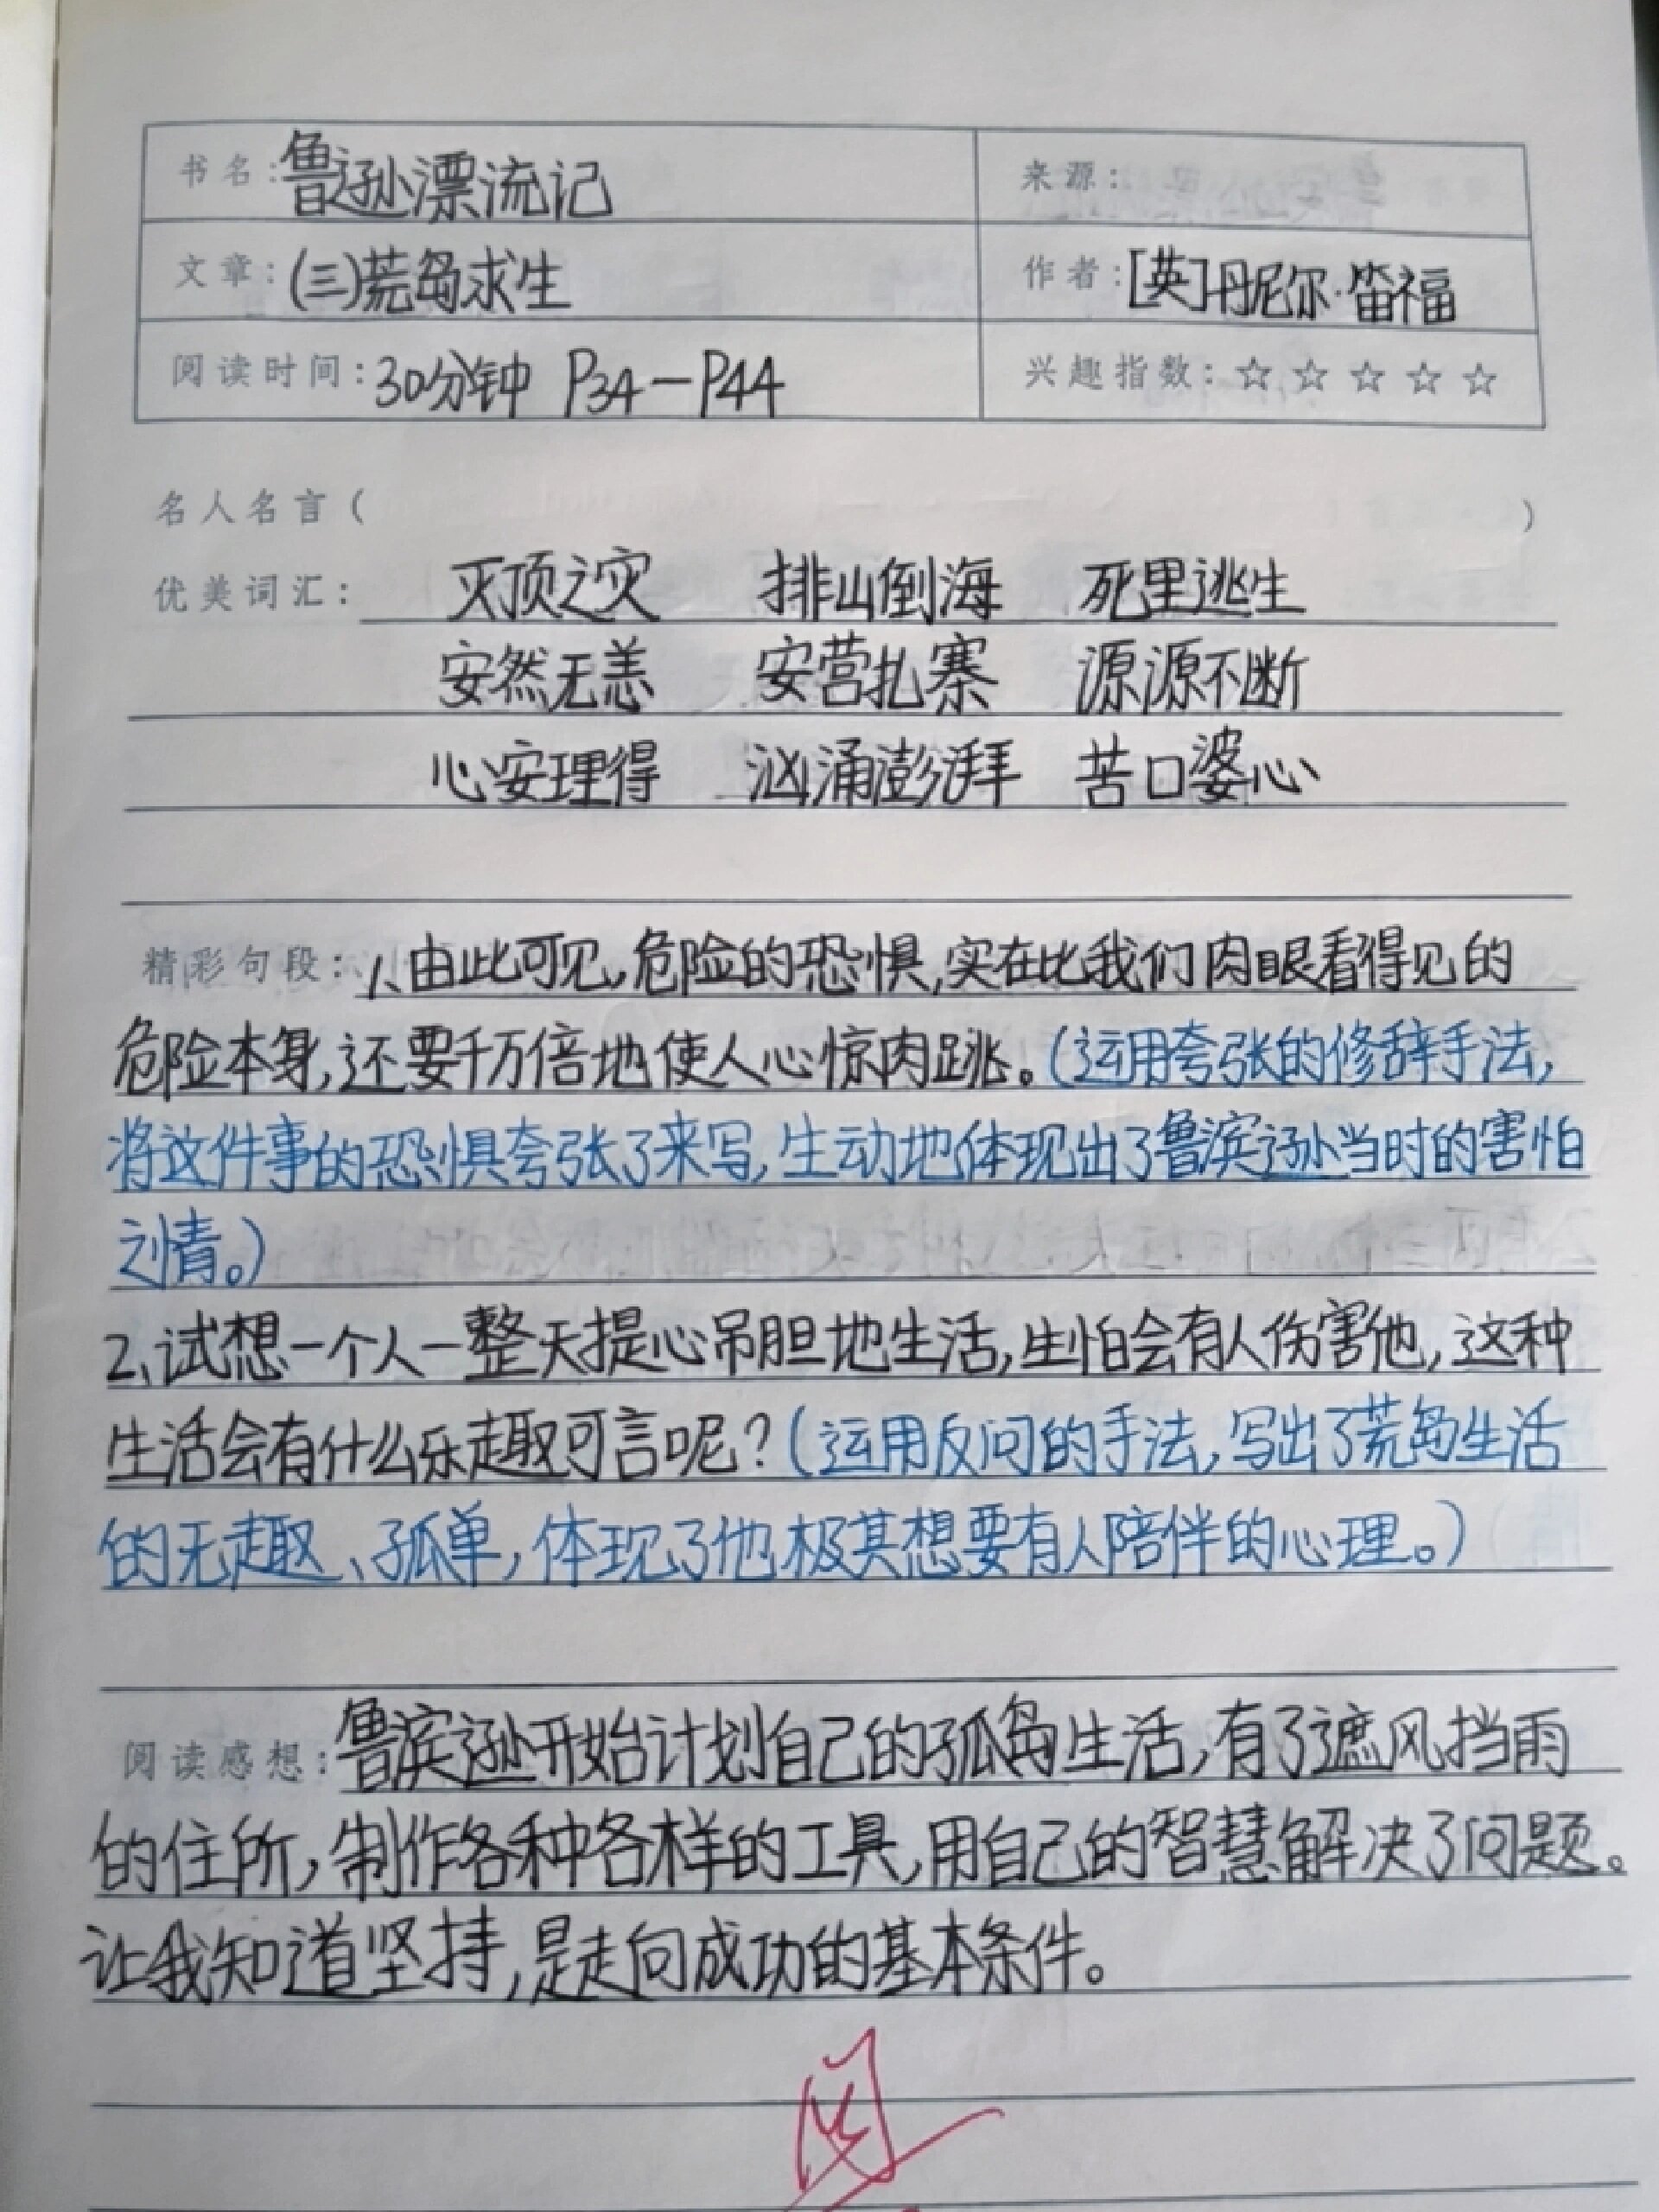 书名:鲁逊漂流记 来源:
文章:(三)荒岛求生 作者:[英]丹尼尔·笛福
阅读时间:30分钟 P34—P44 兴趣指数:☆☆☆☆☆
名人名言( )
优美词汇: 灭顶之灾 排山倒海 死里逃生
安然无恙 安营扎寨 源源不断
心安理得 汹涌澎湃 苦口婆心
精彩句段:1、由此可见,危险的恐惧,实在比我们肉眼看得见的
危险本身,还要千万倍地使人心惊肉跳。(运用夸张的修辞手法,
将这件事的恐惧夸张了来写,生动地体现出了鲁滨逊当时的害怕
之情。)
2、试想一个人一整天提心吊胆地生活,生怕会有人伤害他,这种
生活会有什么乐趣可言呢?(运用反问的手法,写出了荒岛生活
的无趣、孤单,体现了他极其想要有人陪伴的心理。)
阅读感想:鲁滨逊开始计划自己的孤岛生活,有了遮风挡雨
的住所,制作各种各样的工具,用自己的智慧解决了问题。
让我知道坚持,是走向成功的基本条件。
阅